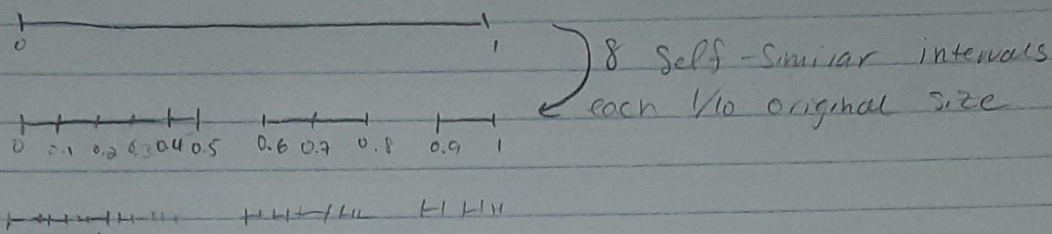 0 1
8 Self-Similar intervals
each 1/10 original size
0 0.1 0.2 0.3 0.4 0.5 0.6 0.7 0.8 0.9 1